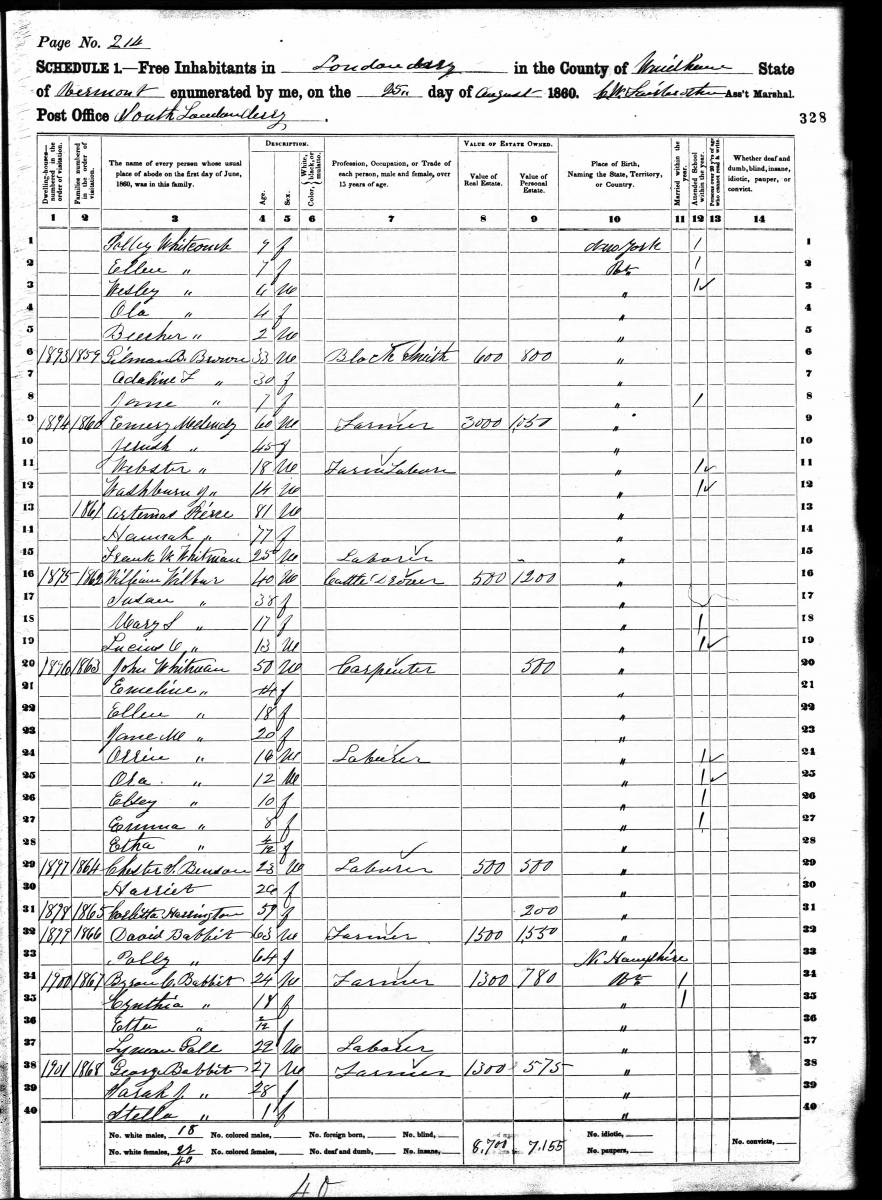 Page No. 214
SCHEDULE 1.—Free Inhabitants in Londonderry in the County of Windham State
of Vermont enumerated by me, on the 25 day of August 1860. Ass't Marshal.
Post Office South Londonderry
328
Dwelling-houses—numbered in the order of visitation.
Families numbered in the order of visitation.
The name of every person whose usual place of abode on the first day of June, 1860, was in this family.
DESCRIPTION.
Age.
Sex.
Color, White, black, or mulatto.
Profession, Occupation, or Trade of each person, male and female, over 15 years of age.
VALUE OF ESTATE OWNED.
Value of Real Estate.
Value of Personal Estate.
Place of Birth, Naming the State, Territory, or Country.
Married within the year.
Attended School within the year.
Persons over 20 y'rs of age who cannot read & write.
Whether deaf and dumb, blind, insane, idiotic, pauper, or convict.
1 2 3 4 5 6 7 8 9 10 11 12 13 14
1 Polley Whitcomb 9 f New York 1 1
2 Ellen " 7 f 1 2
3 Wesley " 6 m " 1 3
4 Ola " 4 f " 4
5 Beecher " 2 m " 5
6 1893 1859 Gilman B. Brown 33 m Black Smith 600 800 " 6
7 Adaline L " 30 f " 7
8 " 7 f " 1 8
9 1894 1860 Emery Melendy 60 m Farmer 3000 1,050 " 9
10 Jerush " 45 f " 10
11 Webster " 18 m Farm Labore " 1 11
12 Washburn " 14 m " 1 12
13 1861 Artemas Pierce 81 m " 13
14 Hannah " 77 f " 14
15 Frank W. Whitman 25 m Laborer " 15
16 1895 1862 William Wilbur 40 m Cattle Drover 500 1200 " 16
17 Susan " 38 f " 17
18 Mary S " 17 f " 1 18
19 Lucius " 13 m " 1 19
20 1896 1863 John Whitman 50 m Carpenter 500 " 20
21 Emeline " f " 21
22 Ellen " 18 f " 22
23 Jane M " 20 f " 23
24 Orrin " 16 m Laburer " 1 24
25 Ora " 12 m " 1 25
26 Elsey " 10 f " 1 26
27 Emma " 8 f " 1 27
28 Etha " f " 28
29 1897 1864 Chester S. Benson 23 m Laburer 500 500 " 29
30 Harriet f " 30
31 1898 1865 Harrington 59 f 200 " 31
32 1899 1866 David Babbit 63 m Farmer 1500 1,550 " 32
33 Polly " 64 f N. Hampshire 33
34 1900 1867 Byron C. Babbit 24 m Farmer 1300 780 1 34
35 Cynthia " f " 1 35
36 Etta " 2/12 f " 36
37 Lyman Gale 22 m Laborer " 37
38 1901 1868 George Babbit 27 m Farmer 1300 575 " 38
39 Sarah J. " 28 f " 39
40 Stella " 1 f " 40
No. white males, 18 No. colored males, No. foreign born, No. blind, No. idiotic,
No. white females, 22 No. colored females, No. deaf and dumb, No. insane, 8,700 7,155 No. paupers, No. convicts,
40
40